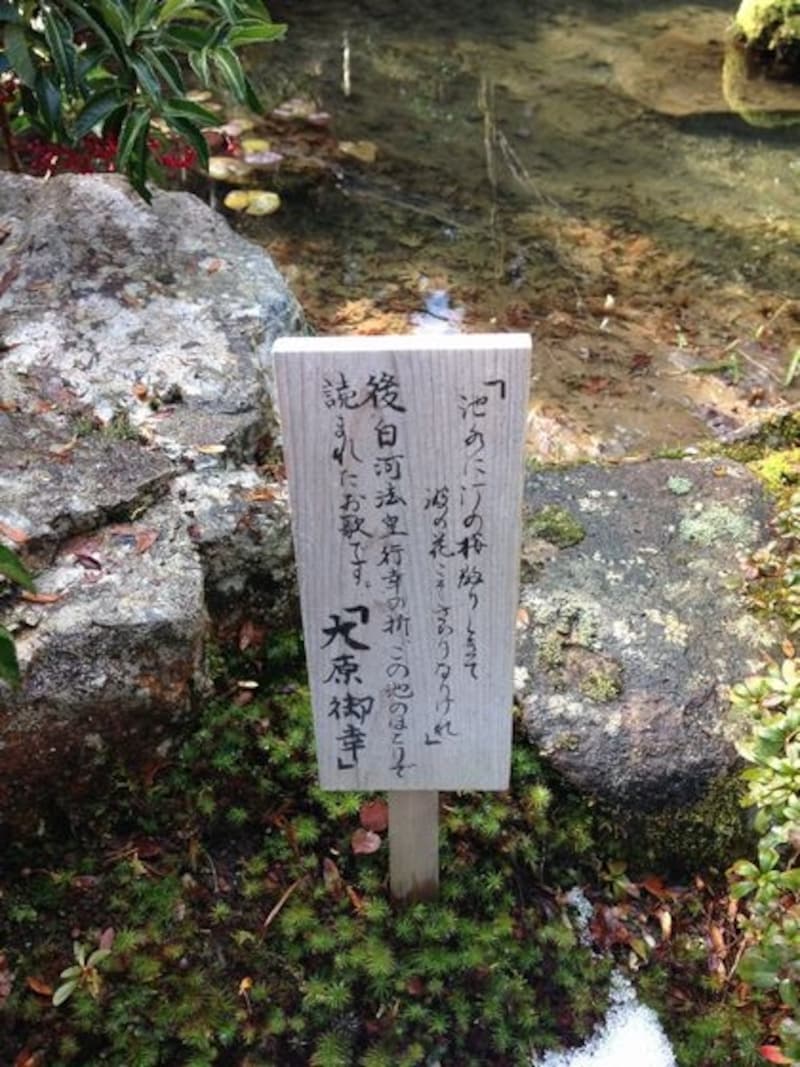 「池水に汀の桜散りしきて
波の花こそさかりなりけれ」
後白河法皇行幸の折、この池のほとりで
読まれたお歌です。「大原御幸」